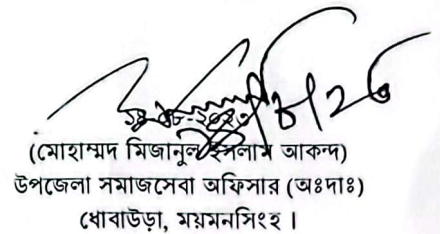 (মোহাম্মদ মিজানুল ইসলাম আকন্দ)
উপজেলা সমাজসেবা অফিসার (অঃদাঃ)
ধোবাউড়া, ময়মনসিংহ ।